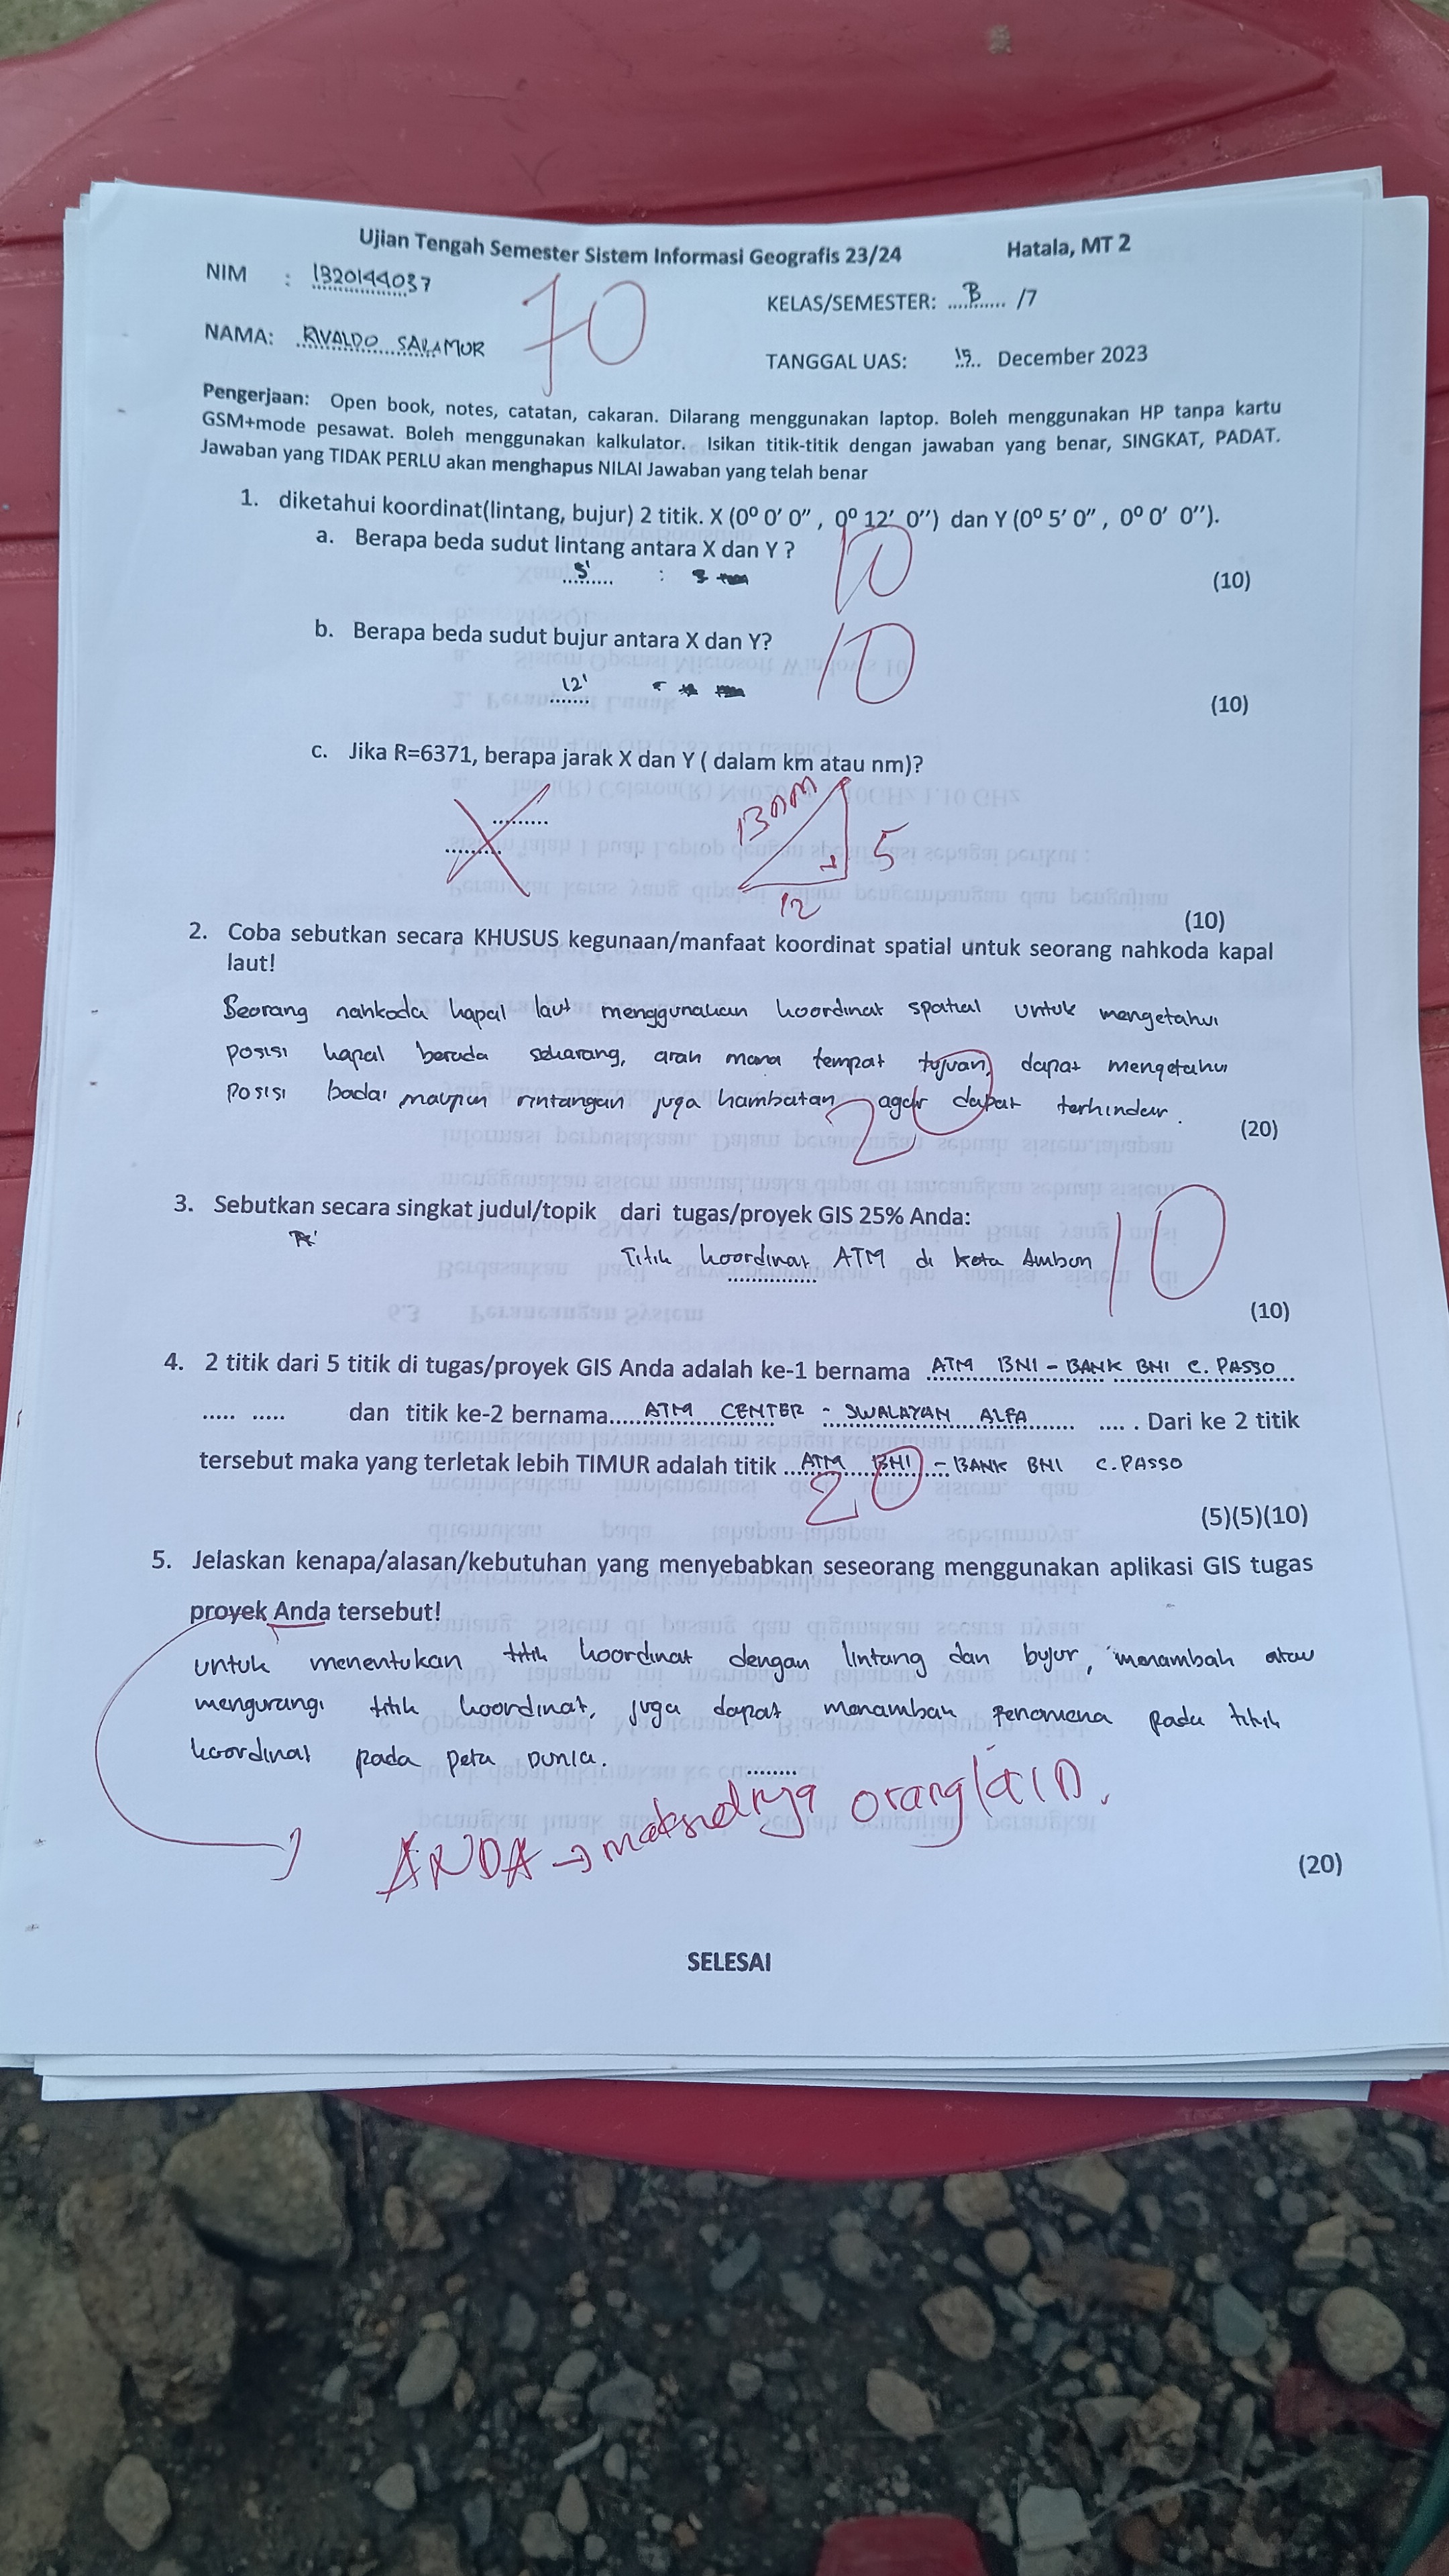 Ujian Tengah Semester Sistem Informasi Geografis 23/24 Hatala, MT 2
NIM : 1320144037
70
KELAS/SEMESTER: B /7
NAMA: RIVALDO SALAMUR
TANGGAL UAS: 15 December 2023
Pengerjaan: Open book, notes, catatan, cakaran. Dilarang menggunakan laptop. Boleh menggunakan HP tanpa kartu
GSM+mode pesawat. Boleh menggunakan kalkulator. Isikan titik-titik dengan jawaban yang benar, SINGKAT, PADAT.
Jawaban yang TIDAK PERLU akan menghapus NILAI Jawaban yang telah benar
1. diketahui koordinat(lintang, bujur) 2 titik. X (0° 0′ 0″ , 0° 12′ 0″) dan Y (0° 5′ 0″ , 0° 0′ 0″).
a. Berapa beda sudut lintang antara X dan Y ?
5' : 10
(10)
b. Berapa beda sudut bujur antara X dan Y?
12' 10
(10)
c. Jika R=6371, berapa jarak X dan Y ( dalam km atau nm)?
13 nm 5
12
(10)
2. Coba sebutkan secara KHUSUS kegunaan/manfaat koordinat spatial untuk seorang nahkoda kapal
laut!
Seorang nahkoda kapal laut menggunakan koordinat spatial untuk mengetahui
posisi kapal berada sekarang, arah mana tempat tujuan, dapat mengetahui
posisi badai maupun rintangan juga hambatan agar dapat terhindar.
20
(20)
3. Sebutkan secara singkat judul/topik dari tugas/proyek GIS 25% Anda:
Titik koordinat ATM di kota Ambon 10
(10)
4. 2 titik dari 5 titik di tugas/proyek GIS Anda adalah ke-1 bernama ATM BNI - BANK BNI C. PASSO
..... ..... dan titik ke-2 bernama..... ATM CENTER - SWALAYAN ALFA ...... .... . Dari ke 2 titik
tersebut maka yang terletak lebih TIMUR adalah titik ... ATM BNI - BANK BNI C. PASSO
20
(5)(5)(10)
5. Jelaskan kenapa/alasan/kebutuhan yang menyebabkan seseorang menggunakan aplikasi GIS tugas
proyek Anda tersebut!
untuk menentukan titik koordinat dengan lintang dan bujur, menambah atau
mengurangi titik koordinat, juga dapat menambah fenomena pada titik
koordinat pada peta Dunia. ........
ANDA → maksudnya orang lain.
(20)
SELESAI